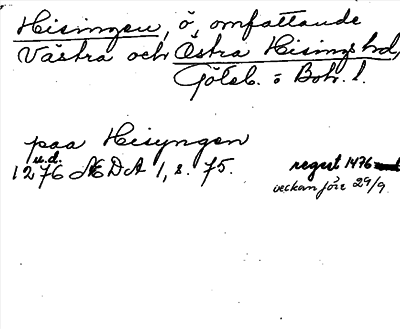 Hisingen, ö, omfattande
Västra och Östra Hisings hd,
Göteb. o Boh. l.
paa Hisyngen
u.d.
1276 ÆDA 1, s. 75.
regest 1476
veckan före 29/9